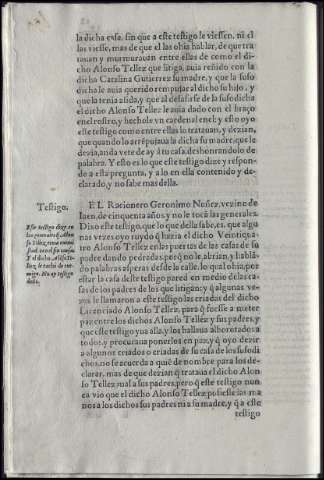 la dicha cusa, sin que a este testigo le viessen, ni el
las viesse, mas de que las ohia hablar, de que tra-
tauan y murmurauan entre ellas de como el di-
cho Alonso Tellez que litiga, auia reñido con la
dicha Catalina Gutierrez su madre, y que la suso
dicho le auia querido rempujar al dicho su hijo, y
que lo tenia asida, y que al desasirse de la suso dicha
el dicho Alonso Tellez le auia dado con el braço
en el rostro, y hechole vn cardenal en el: y esto oyo
este testigo como entre ellas lo tratauan, y dezian,
que quando lo arrepujaua la dicha su madre, que le
dezia, anda vete de ay a tu casa, deshonrandolo de
palabra. Y esto es lo que este testigo dize y respon-
de a esta pregunta, y a lo en ella contenido y de-
clarado, y no sabe mas della.
Testigo.
Este testigo dize en
las generales, q Alon
so Tellez
Y el dicho Alõso Te-
llez, le tacho de ene-
migo. No ay testigo
della.
EL Racionero Geronimo Nuñez, vezino de
Iaen, de cinquenta años, y no le tocã las generales.
Dixo este testigo, que lo que della sabe, es, que algu
nas vezes oyo ruydo q̃ hazia el dicho Veintiqua-
tro Alonso Tellez en las puertas de las casas de su
padre dando pedradas, perq̃ no le abrian, y hablã-
do palabras asperas desde la calle, lo qual ohia, por
estar la casa deste testigo pared en medio de las ca-
sas de los padres de los que litigan: y q̃ algunas ve-
zes le llamaron a este testigo las criadas del dicho
Licenciado Alonso Tellez, para q̃ fuesse a meter
paz entre los dichos Alonso Tellez y sus padres, y
que este testigo yua alla, y los hallaua alborotados a
todos, y procuraua ponerlos en paz, y q̃ oyo dezir
a algunos criados o criadas de su casa de los suso di-
chos, no se acuerda a quiẽ de nombre para los de-
clarar, mas de que dezian q̃ trataua el dicho Alon
so Tellez mal a sus padres, pero q̃ este testigo nun
ca vio que el dicho Alonso Tellez pusiesse las ma
nos a los dichos sus padres ni a su madre, y q̃ a este
testigo